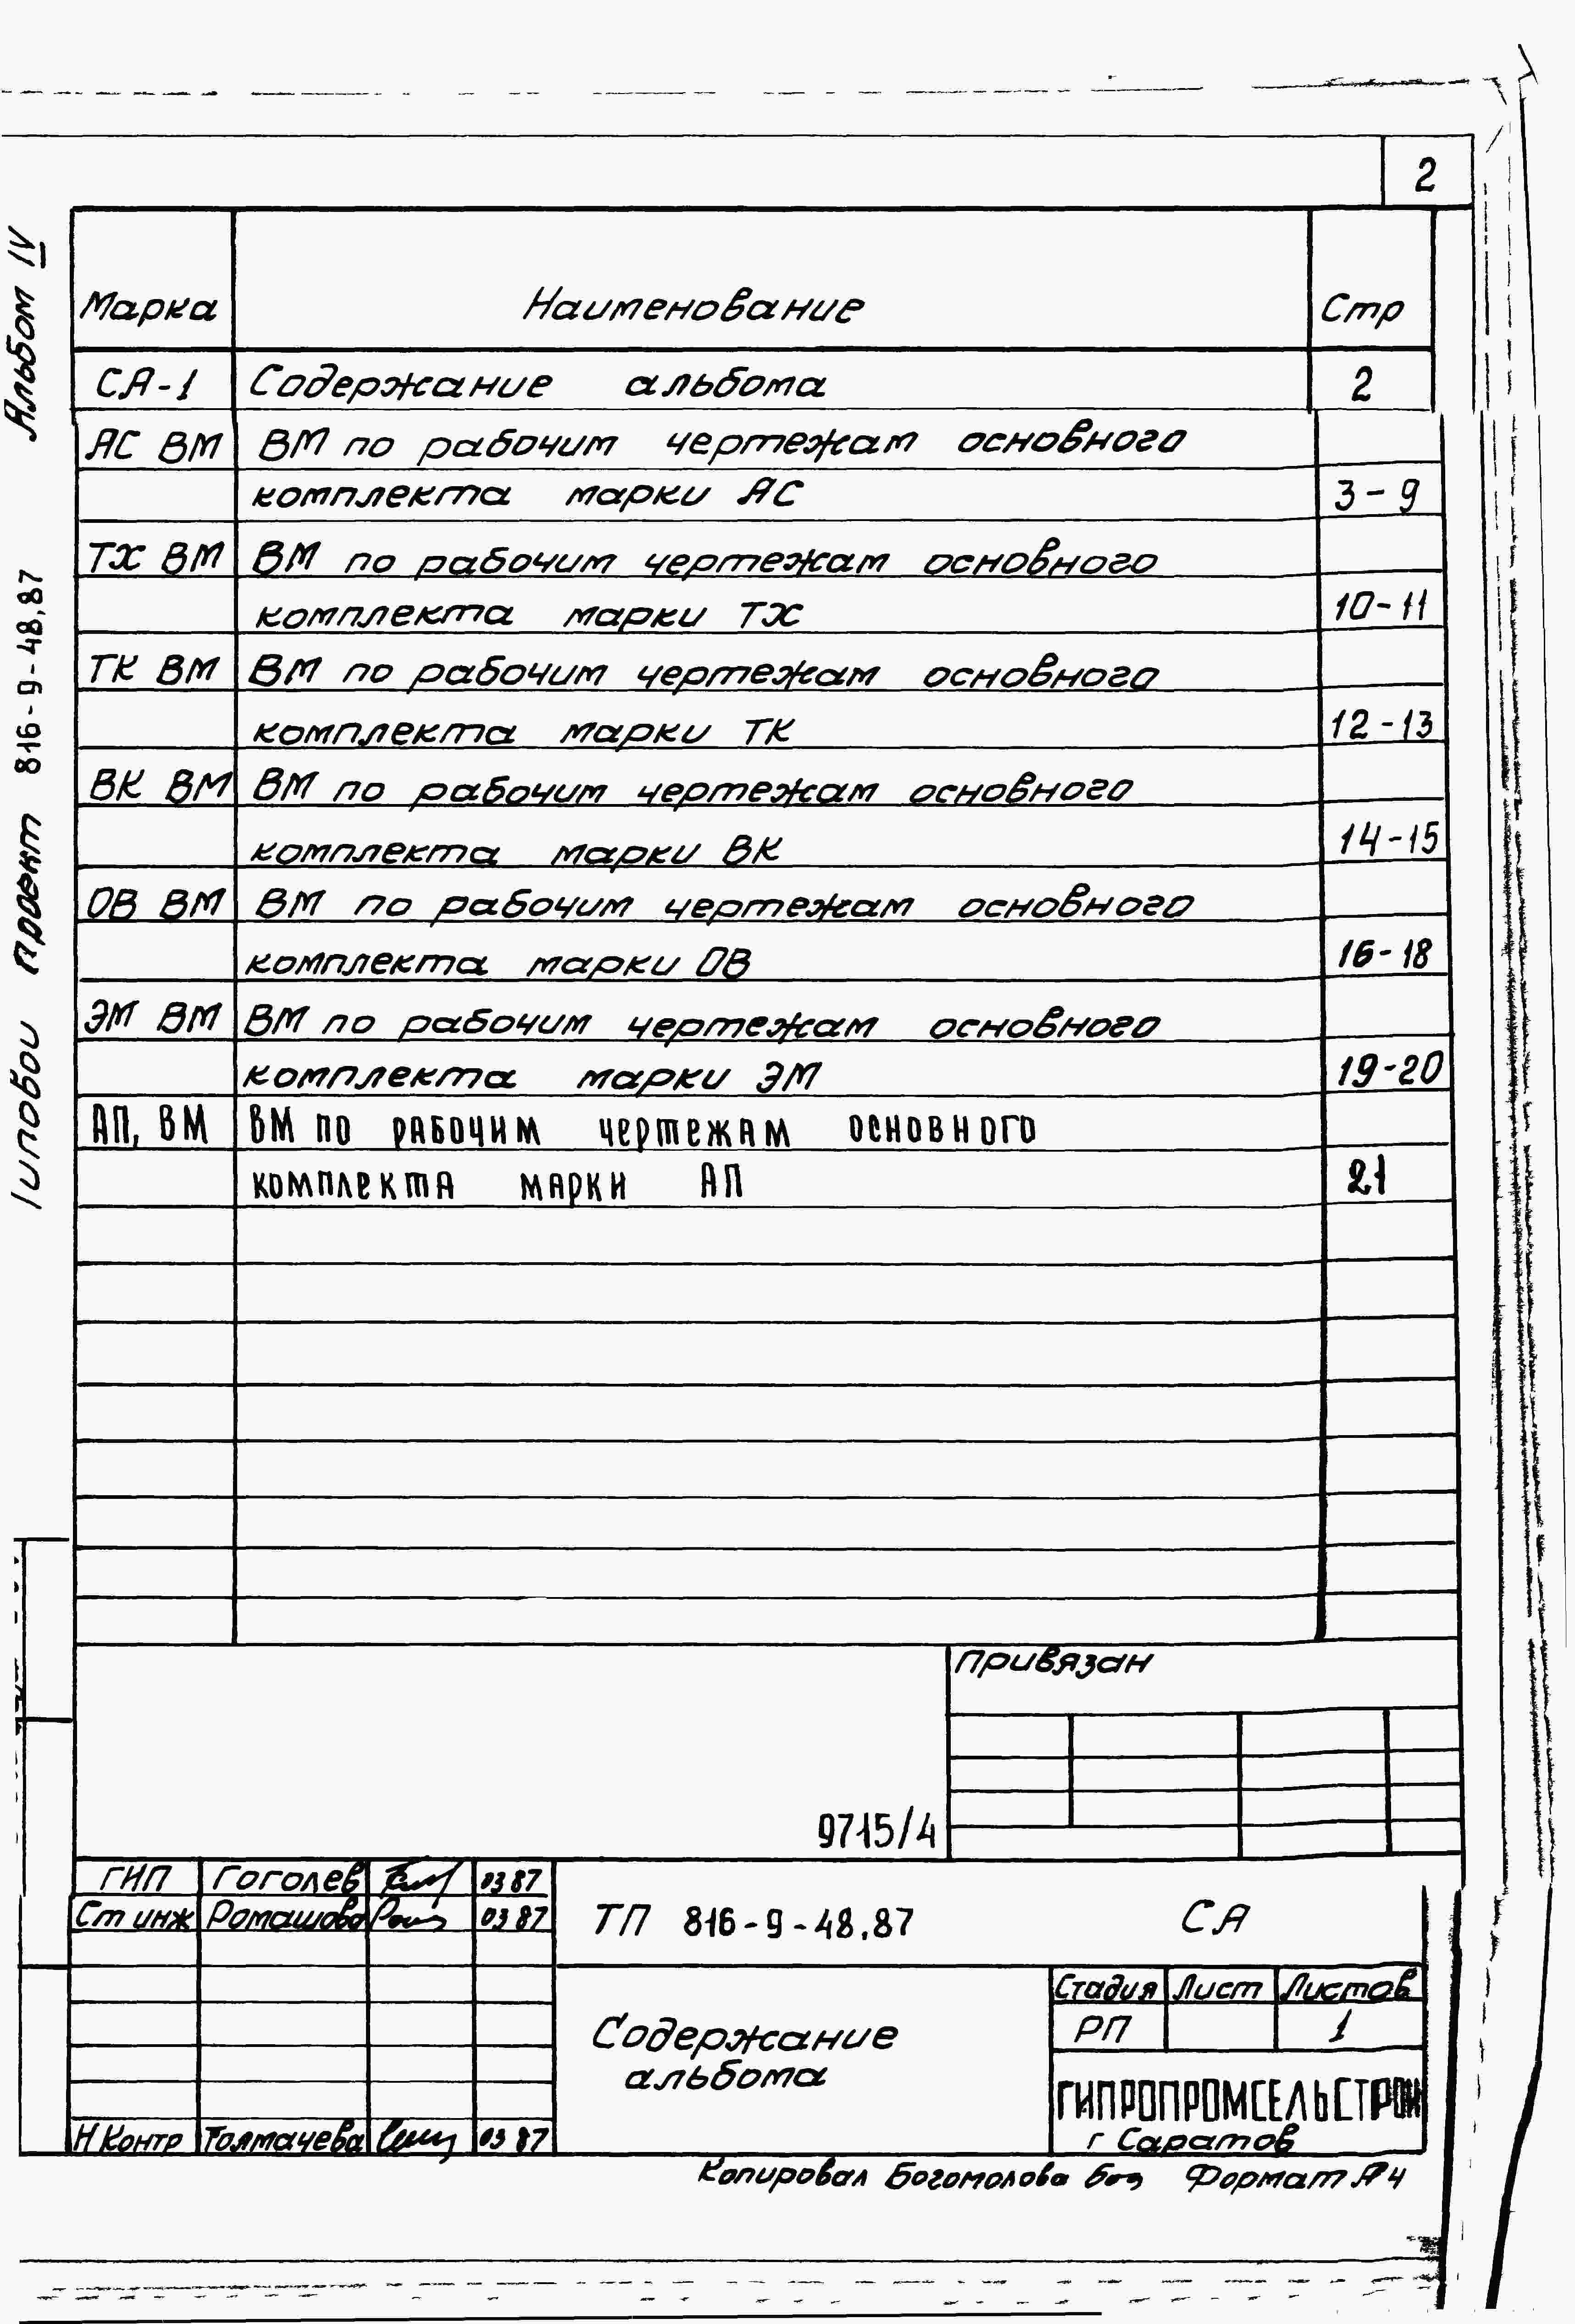 2
Альбом IV
Типовой проект 816-9-48.87
Марка Наименование Стр
СА-1 Содержание альбома 2
АС ВМ ВМ по рабочим чертежам основного
комплекта марки АС 3-9
ТХ ВМ ВМ по рабочим чертежам основного
комплекта марки ТХ 10-11
ТК ВМ ВМ по рабочим чертежам основного
комплекта марки ТК 12-13
ВК ВМ ВМ по рабочим чертежам основного
комплекта марки ВК 14-15
ОВ ВМ ВМ по рабочим чертежам основного
комплекта марки ОВ 16-18
ЭМ ВМ ВМ по рабочим чертежам основного
комплекта марки ЭМ 19-20
АП, ВМ ВМ по рабочим чертежам основного
комплекта марки АП 21
Привязан
9715/4
ГИП Гоголев 03 87
Ст инж Ромашова 03 87
ТП 816-9-48.87 СА
Содержание
альбома
Стадия Лист Листов
РП 1
ГИПРОПРОМСЕЛЬСТРОЙ
г Саратов
Н Контр Толмачева 03 87
Копировал Богомолова Формат А4